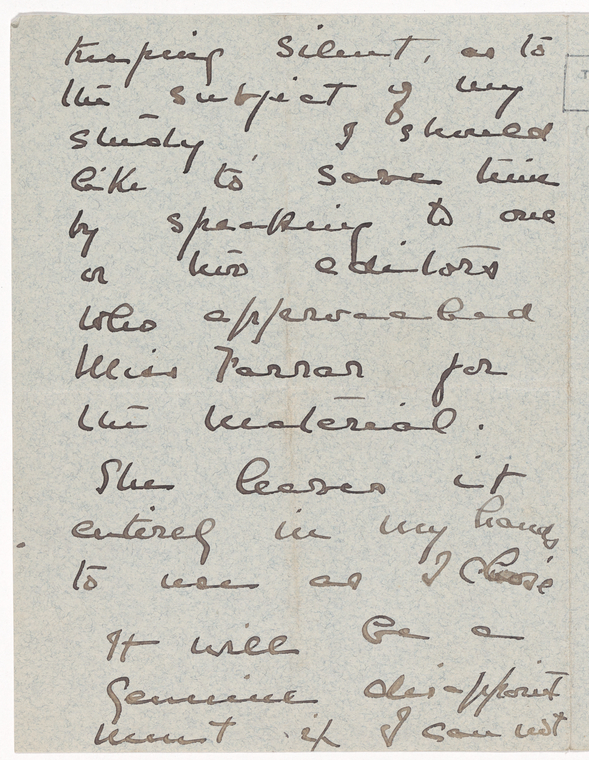 keeping silent, as to
the subject of my
study. I should
like to save time
by speaking to one
or two editors
who approached
Miss Farrar for
the material.
She leaves it
entirely in my hands
to use as I chose
It will be a
genuine disappoint
ment if I can not